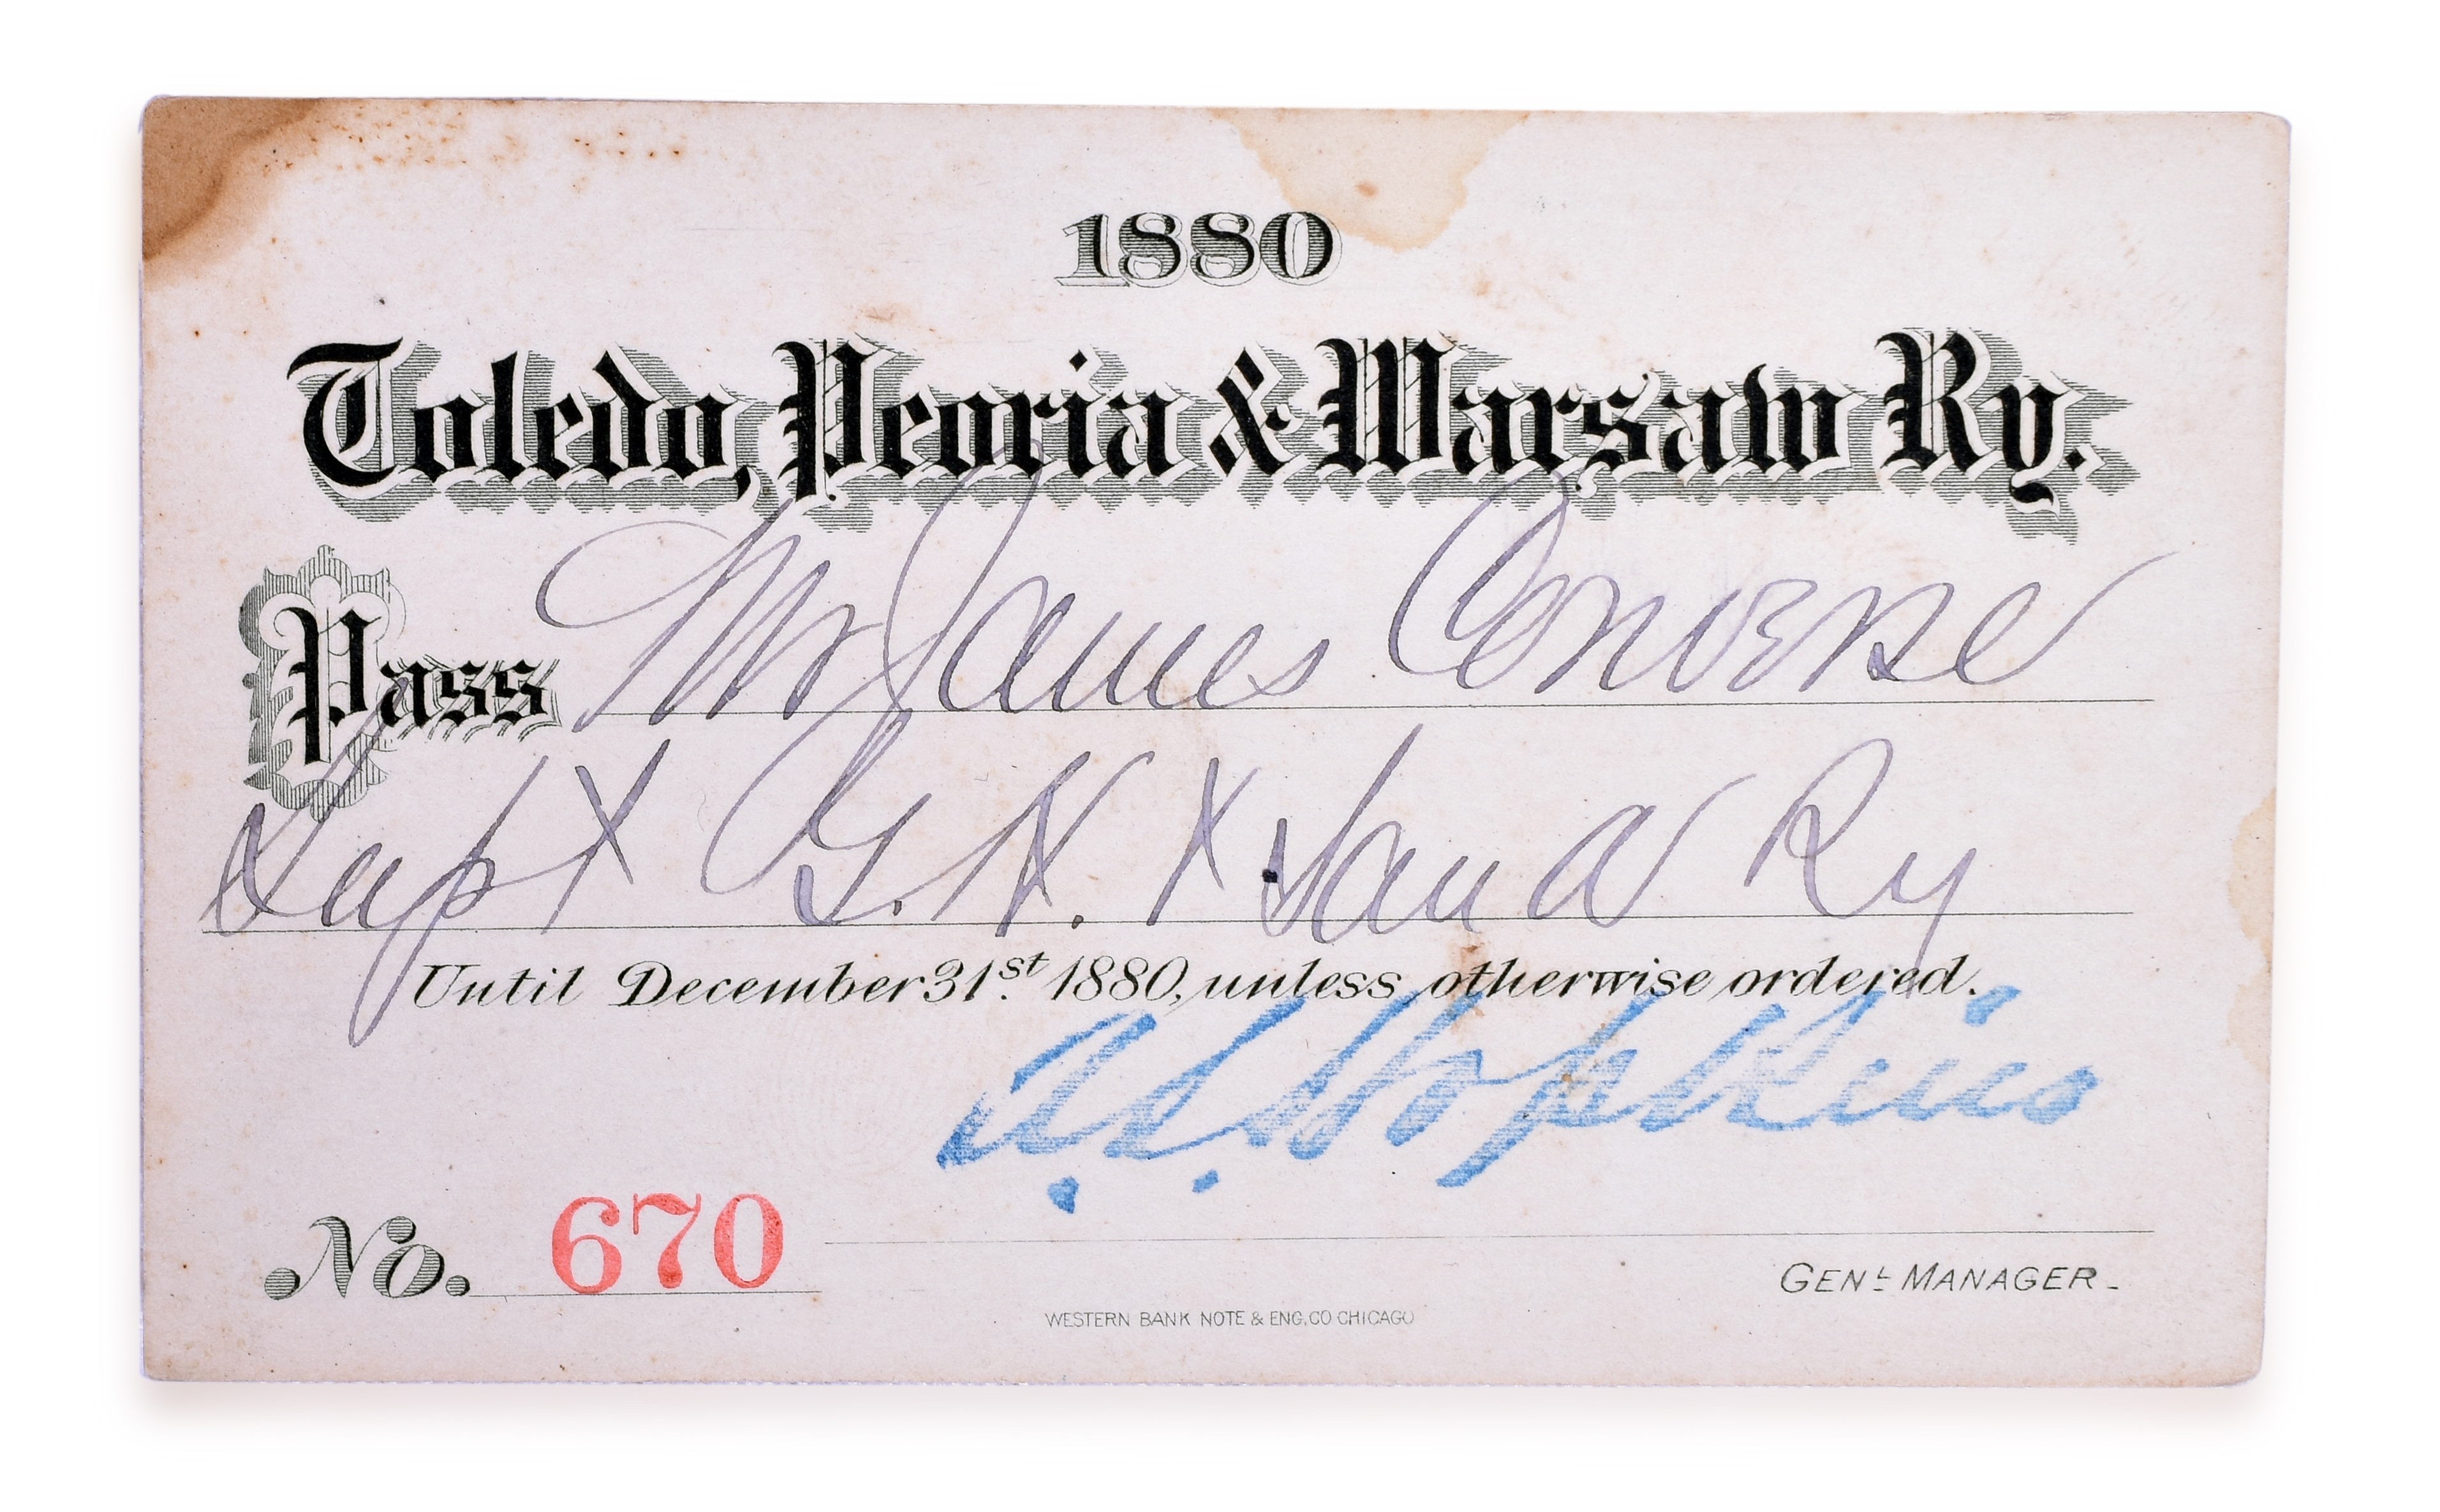 1880
Toledo, Peoria & Warsaw Ry.
Pass Mr James Converse
Supt G. H. & San A Ry
Until December 31st 1880, unless otherwise ordered.
A. L. Hopkins
No. 670
GENL MANAGER
WESTERN BANK NOTE & ENG. CO CHICAGO